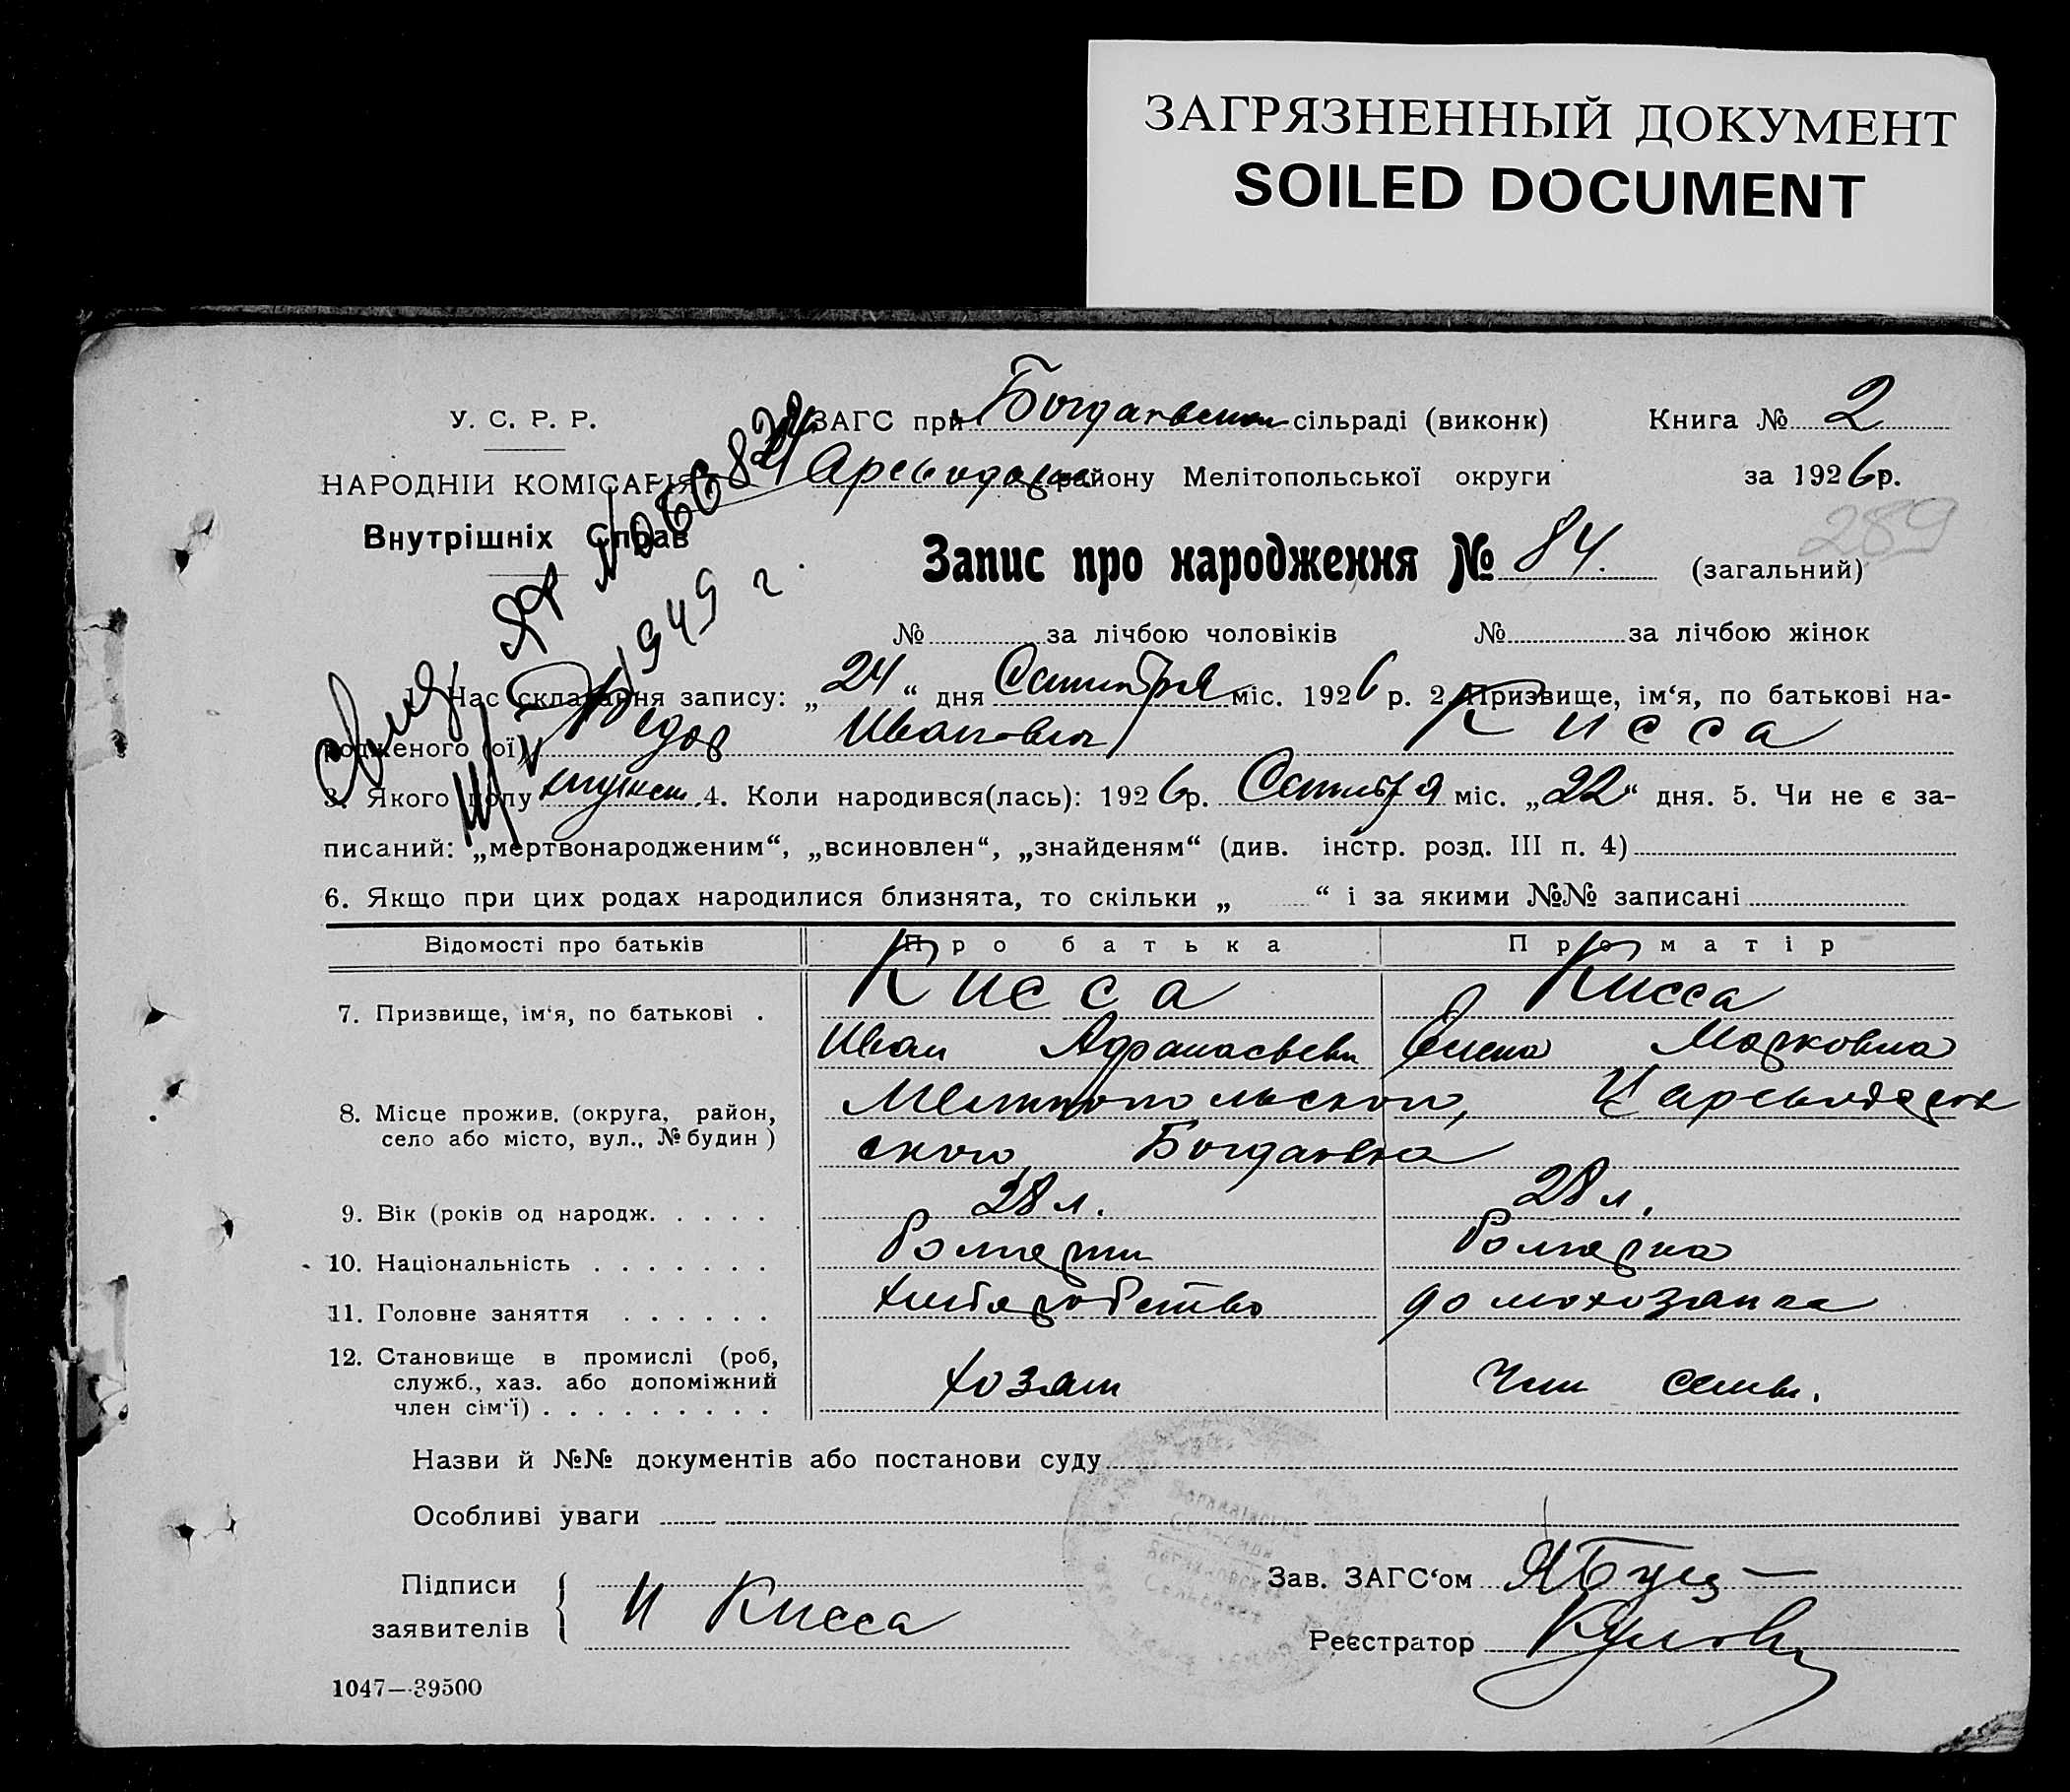 ЗАГРЯЗНЕННЫЙ ДОКУМЕНТ
SOILED DOCUMENT
У. С. Р. Р.
НАРОДНІЙ КОМІСАРІЯТ
Внутрішніх Справ
ЗАГС при Богдановском сільраді (виконк)
Книга № 2
району Мелітопольської округи
за 1926 р.
289
Запис про народження № 84. (загальний)
№ за лічбою чоловіків № за лічбою жінок
1949 г.
1. Час складання запису: „24“ дня Сентября міс. 1926 р. 2. Призвище, ім‘я, по батькові на-
родженого (ої) Федор Иванович Кисса
3. Якого полу мужск. 4. Коли народився(лась): 1926 р. Сентября міс. „22“ дня. 5. Чи не є за-
писаний: „мертвонародженим“, „всиновлен“, „знайденям“ (див. інстр. розд. III п. 4)
6. Якщо при цих родах народилися близнята, то скільки „ “ і за якими №№ записані
Відомості про батьків Про батька Про матір
7. Призвище, ім‘я, по батькові . Кисса Кисса
Иван Афанасьевич Елена Марковна
8. Місце прожив. (округа, район, село або місто, вул., № будин) Мелитопольского, Цареводаров
ского Богдановка
9. Вік (років од народж. . . . . 28 л. 28 л.
10. Національність . . . . . . . Болгарин Болгарка
11. Головне заняття . . . . . . хлебаробство домохозяйка
12. Становище в промислі (роб, служб., хаз. або допоміжний член сім‘ї) . . . . . . . . . хозяин Член семьи.
Назви й №№ документів або постанови суду
Особливі уваги
Підписи заявителів И Кисса
Зав. ЗАГС‘ом
Реєстратор
1047—39500